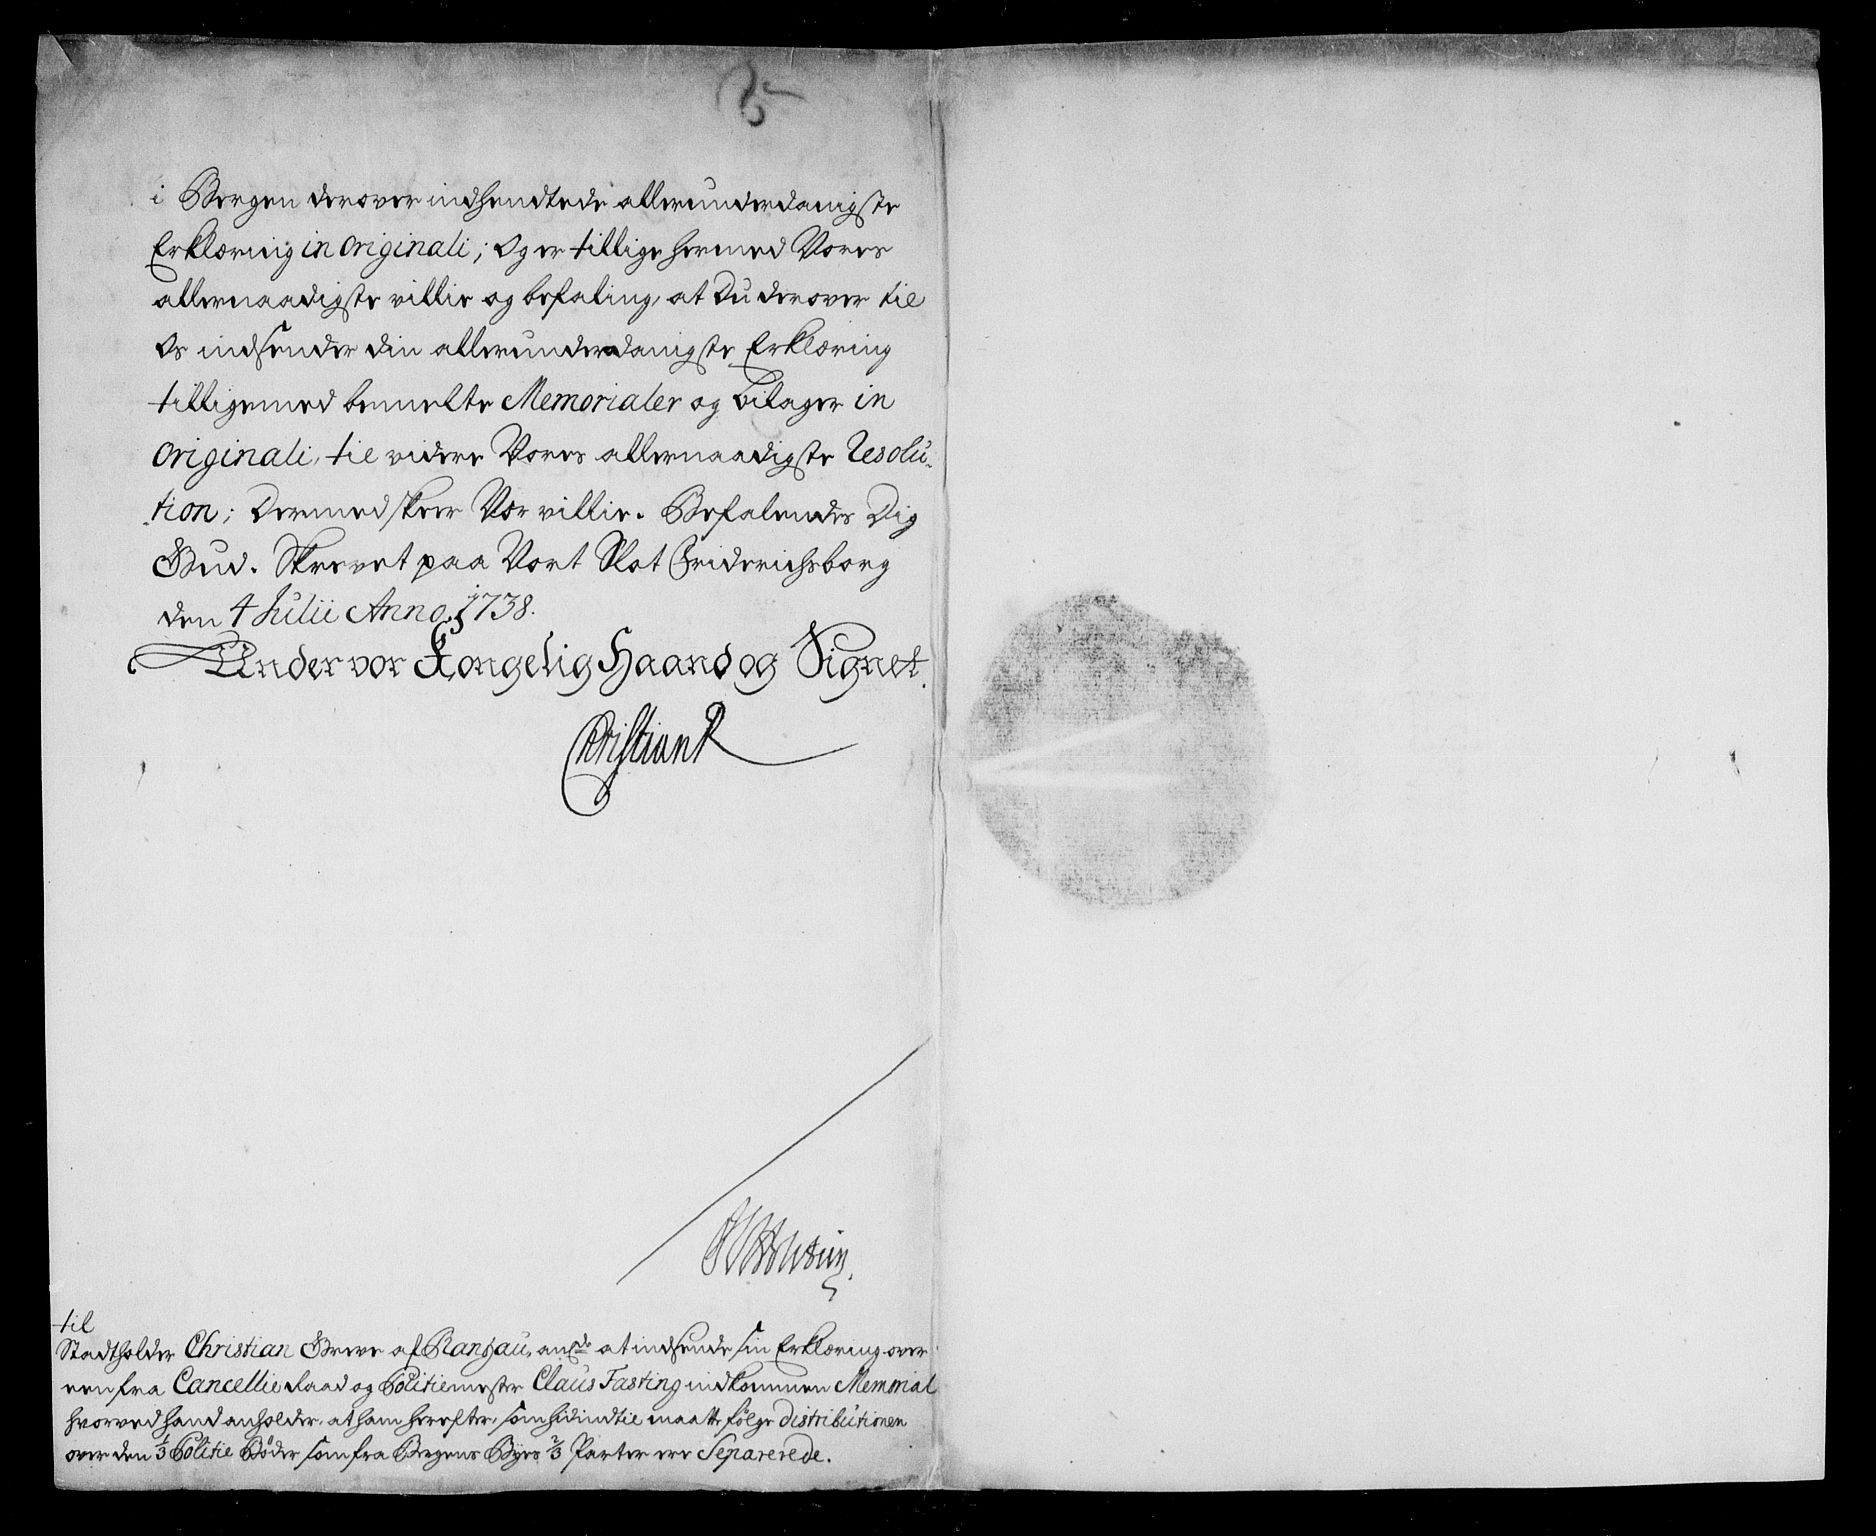 i Bergen derover indhendtede allerunderdanigste
Erklæring in originali; Og er tillige hermed Vores
allernaadigste villie og befaling, at Du derover til
Os indsender din allerunderdanigste Erklæring
tilligemed bemelte Memorialer og bilager in
originali, til videre Vores allernaadigste Resolu-
tion; Dermed skeer Vor villie. Befalendes Dig
Gud. Skrevet paa Vort Slot Friderichsborg
den 4 Julii Anno. 1738.
Under vor Kongelig Haand og Signet.
Christian R
til
Stadtholder Christian Greve af Ranzau, anl.de at indsende sin Erklæring over
een fra Cancellie Raad og Politiemester Claus Fasting indkommen Memorial
hvorved hand anholder, at ham herefter, som hidindtil maatte følge distributionen
over den 1/3 Politie Bøder som fra Bergens Byes 2/3 Parter ere Separerede.